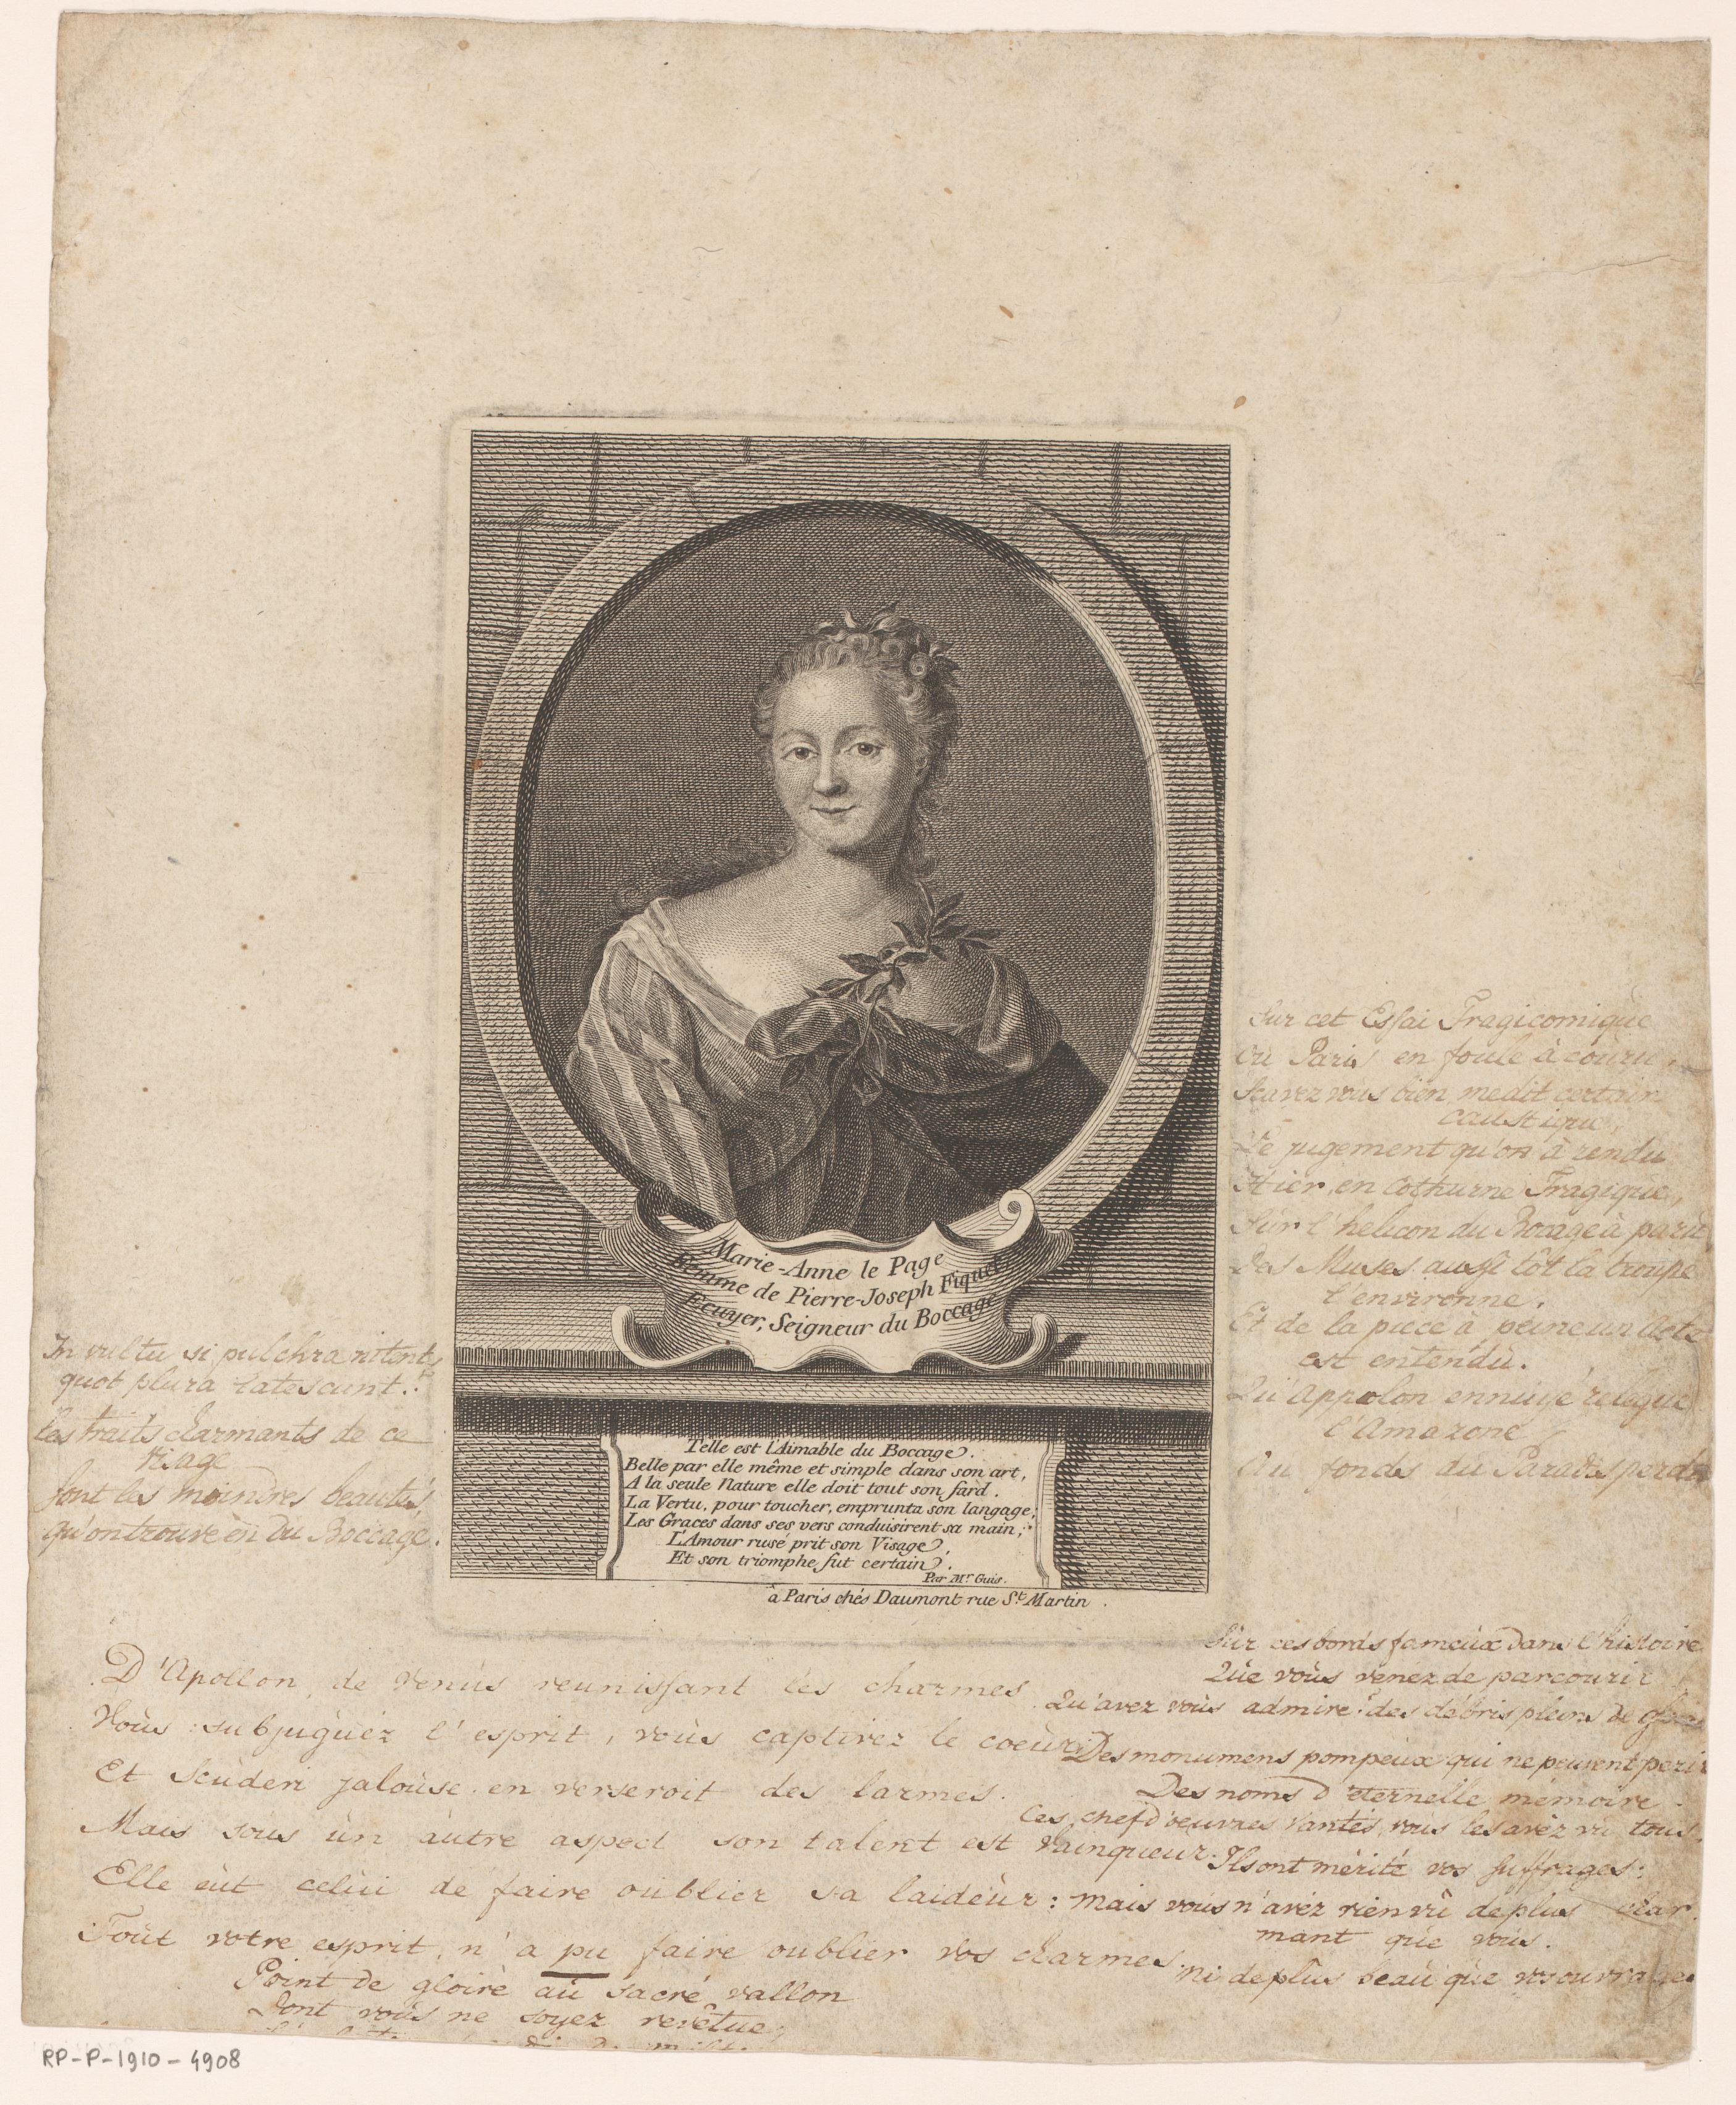 Marie-Anne le Page
Femme de Pierre-Joseph Fiquet
Ecuyer, Seigneur du Boccage
Telle est l'Aimable du Boccage.
Belle par elle même et simple dans son art,
A la seule Nature elle doit tout son fard.
La Vertu, pour toucher, emprunta son langage;
Les Graces dans ses vers conduisirent sa main;
L'Amour rusé prit son Visage,
Et son triomphe fut certain.
Par Mr. Guis.
à Paris chés Daumont rue St. Martin.
In vultu si pulchra nitent,
quot plura latescunt.
les traits charmants de ce
visage
sont les moindres beautés,
qu'on trouve en du Boccage.
Sur cet Essai Tragicomique
où Paris en foule à couru,
Scavez vous bien, medit certain
caustique,
Le jugement qu'on à rendu
Hier, en Cothurne Tragique,
Sur l'helicon du Bocage à paru
Des Muses aussi tôt la troupe
l'environne.
Et de la piece à peine un Acte
est entendu.
Qu'Appolon ennuyé relegue
l'Amazone
Au fonds du Paradis perdu
D'Apollon, de Venus reunissant les charmes
Vous subjuguez l'esprit, vous captivez le coeur;
Et Scuderi jalouse en verseroit des larmes.
Mais sous un autre aspect son talent est vainqueur.
Elle eut celui de faire oublier sa laideur:
Tout votre esprit, n'a pu faire oublier vos charmes.
Point de gloire au sacré vallon
Dont vous ne soyez revêtue;
Sur ces bords fameux dans l'histoire
Que vous venez de parcourir
Qu'avez vous admiré? des débris pleins de gloire
Des monumens pompeux qui ne peuvent perir
Des noms d'eternelle mémoire.
Ces chefd'oeuvres vantés, vous les avéz vu tous,
Ils ont mérité vos suffrages:
mais vous n'avéz rien vû de plus char-
mant que vous.
ni de plus beau que vos ouvrages
RP-P-1910-4908